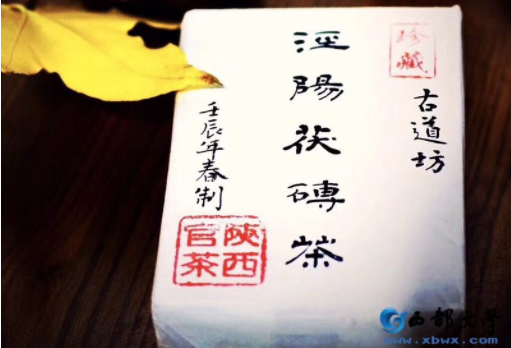 珍藏
古道坊
涇陽茯磚茶
壬辰年春制
陝西
官茶
西部文学
www.xbwx.com